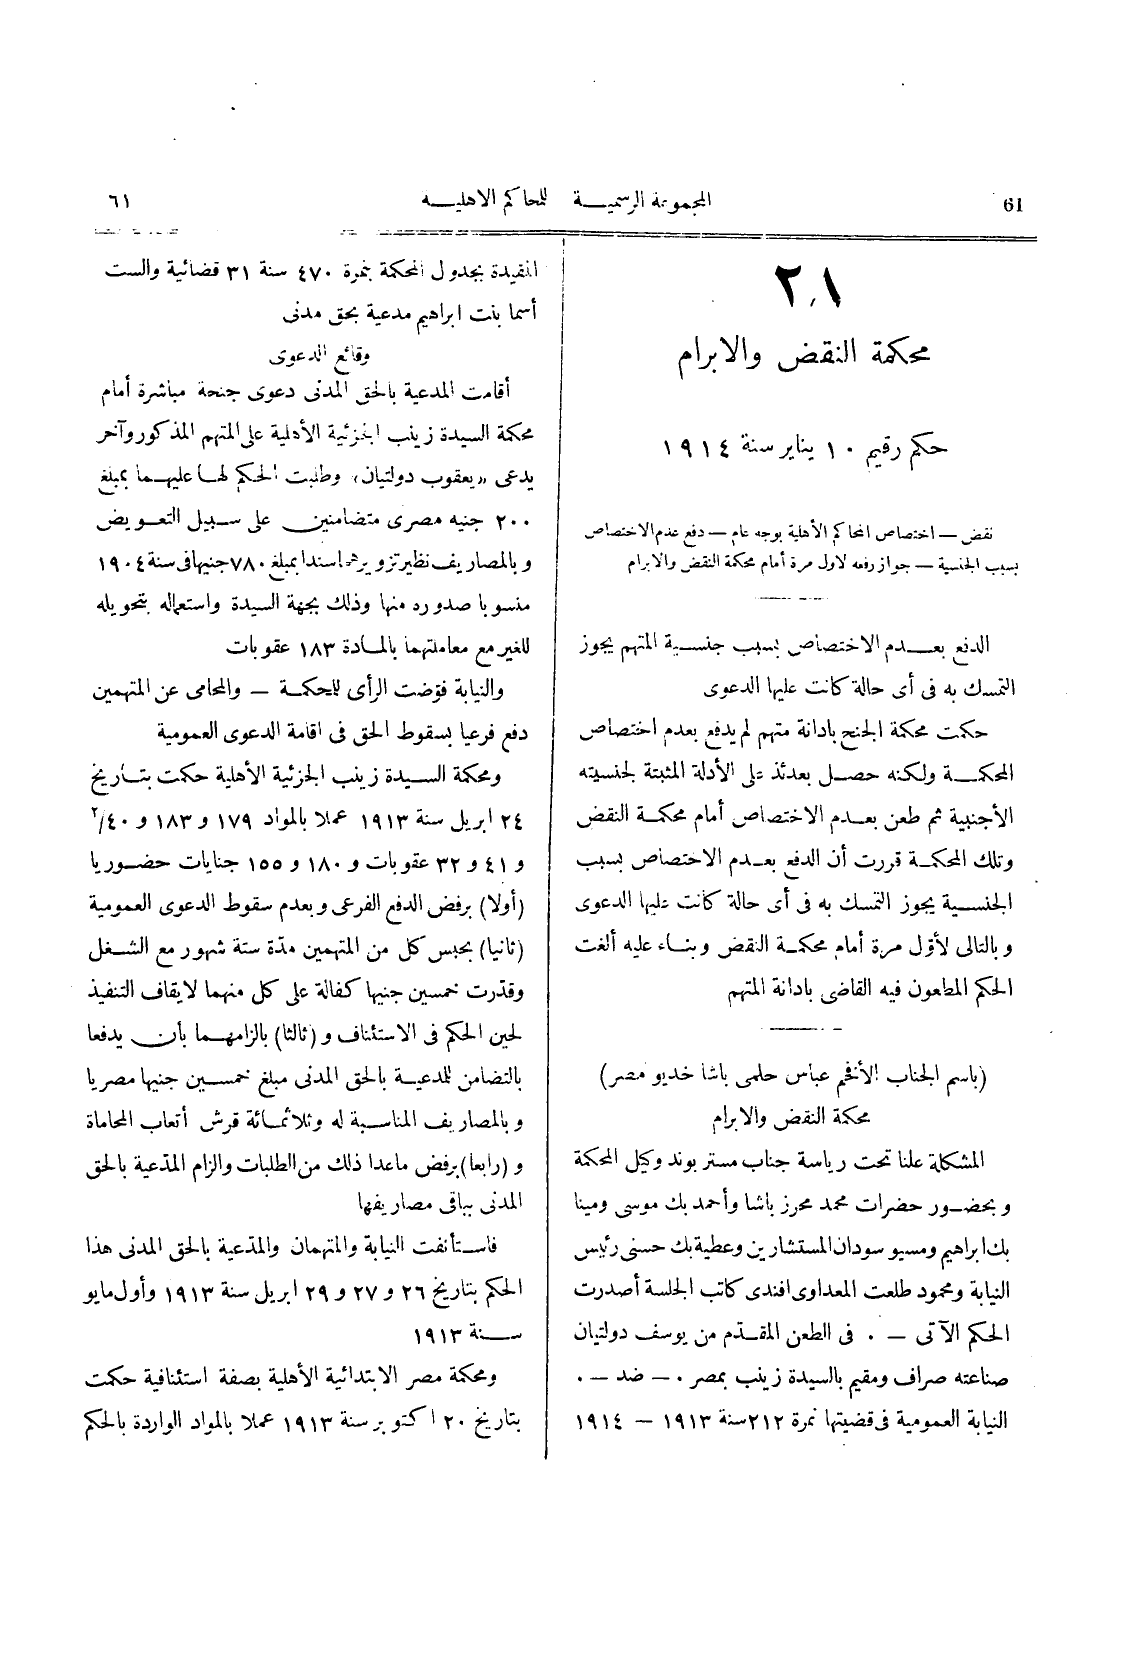 61 المجموعة الرسمية للمحاكم الاهلية ٦١
٢١
محكمة النقض والابرام
حكم رقيم ١٠ يناير سنة ١٩١٤
نقض — اختصاص المحاكم الأهلية بوجه عام — دفع عدم الاختصاص
بسبب الجنسية — جواز رفعه لاول مرة أمام محكمة النقض والابرام
الدفع بعدم الاختصاص بسبب جنسية المتهم يجوز
التمسك به فى أى حالة كانت عليها الدعوى
حكمت محكمة الجنح بادانة متهم لم يدفع بعدم اختصاص
المحكمة ولكنه حصل بعدئذ على الأدلة المثبتة لجنسيته
الأجنبية ثم طعن بعدم الاختصاص أمام محكمة النقض
وتلك المحكمة قررت أن الدفع بعدم الاختصاص بسبب
الجنسية يجوز التمسك به فى أى حالة كانت عليها الدعوى
وبالتالى لأوّل مرة أمام محكمة النقض وبناء عليه ألغت
الحكم المطعون فيه القاضى بادانة المتهم
(باسم الجناب الأفخم عباس حلمى باشا خديو مصر)
محكمة النقض والابرام
المشكلة علنا تحت رياسة جناب مستر بوند وكيل المحكمة
وبحضور حضرات محمد محرز باشا وأحمد بك موسى ومينا
بك ابراهيم ومسيو سودان المستشارين وعطية بك حسنى رئيس
النيابة ومحمود طلعت المعداوى افندى كاتب الجلسة أصدرت
الحكم الآتى — . فى الطعن المقدّم من يوسف دولتيان
صناعته صراف ومقيم بالسيدة زينب بمصر . — ضد — .
النيابة العمومية فى قضيتها نمرة ٢١٢ سنة ١٩١٣ — ١٩١٤
المقيدة بجدول المحكمة بنمرة ٤٧٠ سنة ٣١ قضائية والست
أسما بنت ابراهيم مدعية بحق مدنى
وقائع الدعوى
أقامت المدعية بالحق المدنى دعوى جنحة مباشرة أمام
محكمة السيدة زينب الجزئية الأهلية على المتهم المذكور وآخر
يدعى «يعقوب دولتيان» وطلبت الحكم لها عليهما بمبلغ
٢٠٠ جنيه مصرى متضامنين على سبيل التعويض
وبالمصاريف نظير تزويرهما سندا بمبلغ ٧٨٠ جنيها فى سنة ١٩٠٤
منسوبا صدوره منها وذلك بجهة السيدة واستعماله بتحويله
للغير مع معاملتهما بالمادة ١٨٣ عقوبات
والنيابة فوّضت الرأى للمحكمة — والمحامى عن المتهمين
دفع فرعيا بسقوط الحق فى اقامة الدعوى العمومية
ومحكمة السيدة زينب الجزئية الأهلية حكمت بتاريخ
٢٤ ابريل سنة ١٩١٣ عملا بالمواد ١٧٩ و ١٨٣ و ٤٠/٢
و ٤١ و ٣٢ عقوبات و ١٨٠ و ١٥٥ جنايات حضوريا
(أولا) برفض الدفع الفرعى وبعدم سقوط الدعوى العمومية
(ثانيا) بحبس كل من المتهمين مدّة ستة شهور مع الشغل
وقدّرت خمسين جنيها كفالة على كل منهما لايقاف التنفيذ
لحين الحكم فى الاستئناف و (ثالثا) بالزامهما بأن يدفعا
بالتضامن للمدعية بالحق المدنى مبلغ خمسين جنيها مصريا
وبالمصاريف المناسبة له وثلاثمائة قرش أتعاب المحاماة
و (رابعا) برفض ماعدا ذلك من الطلبات والزام المدّعية بالحق
المدنى بباقى مصاريفها
فاستأنفت النيابة والمتهمان والمدّعية بالحق المدنى هذا
الحكم بتاريخ ٢٦ و ٢٧ و ٢٩ ابريل سنة ١٩١٣ وأول مايو
سنة ١٩١٣
ومحكمة مصر الابتدائية الأهلية بصفة استئنافية حكمت
بتاريخ ٢٠ اكتوبر سنة ١٩١٣ عملا بالمواد الواردة بالحكم